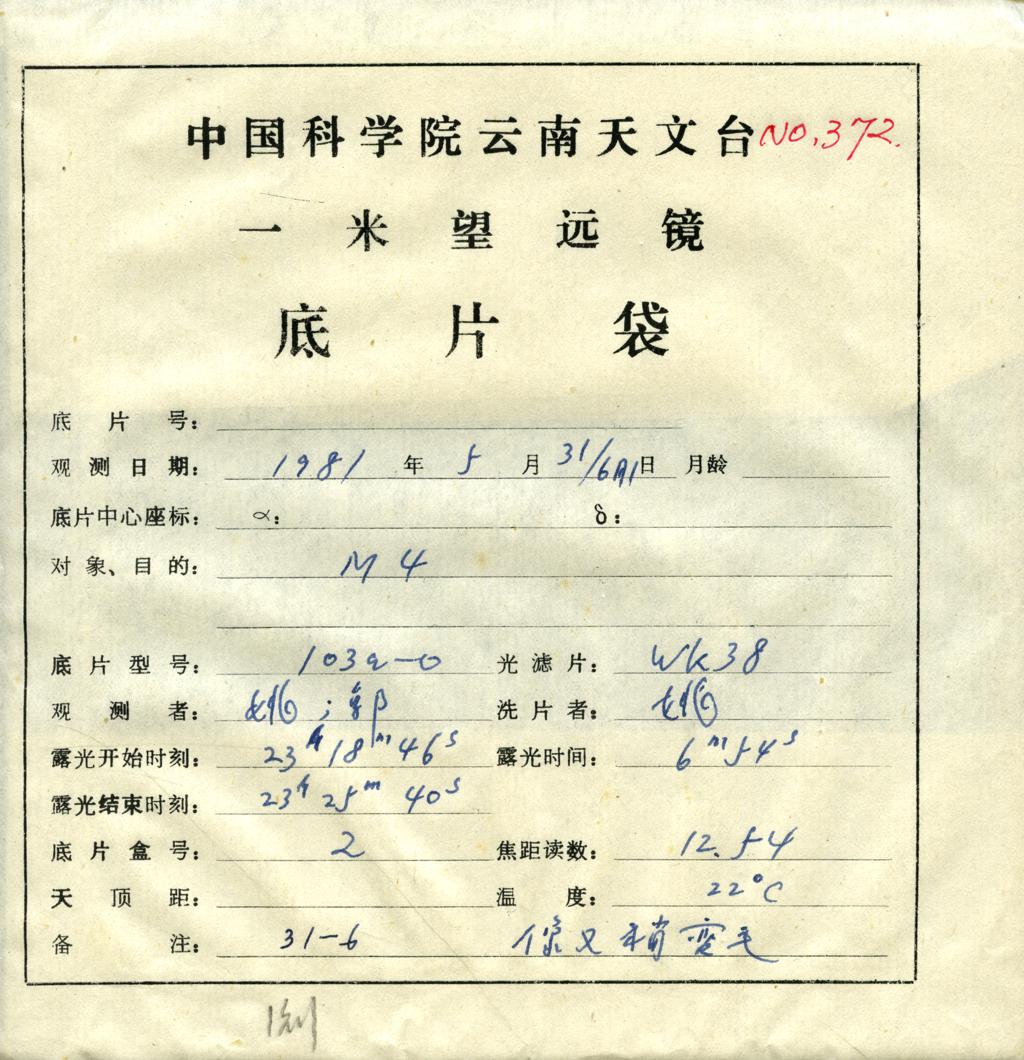 中国科学院云南天文台 NO.372.
一米望远镜
底片袋
底片号：
观测日期： 1981 年 5 月 31/6月1日 月龄
底片中心座标： α： δ：
对象、目的： M4
底片型号： 103a-O 光滤片： WK38
观测者： 姚；郭 洗片者： 姚
露光开始时刻： 23h18m46s 露光时间： 6m54s
露光结束时刻： 23h25m40s
底片盒号： 2 焦距读数： 12.54
天顶距： 温度： 22°C
备注： 31-6 像又稍变毛